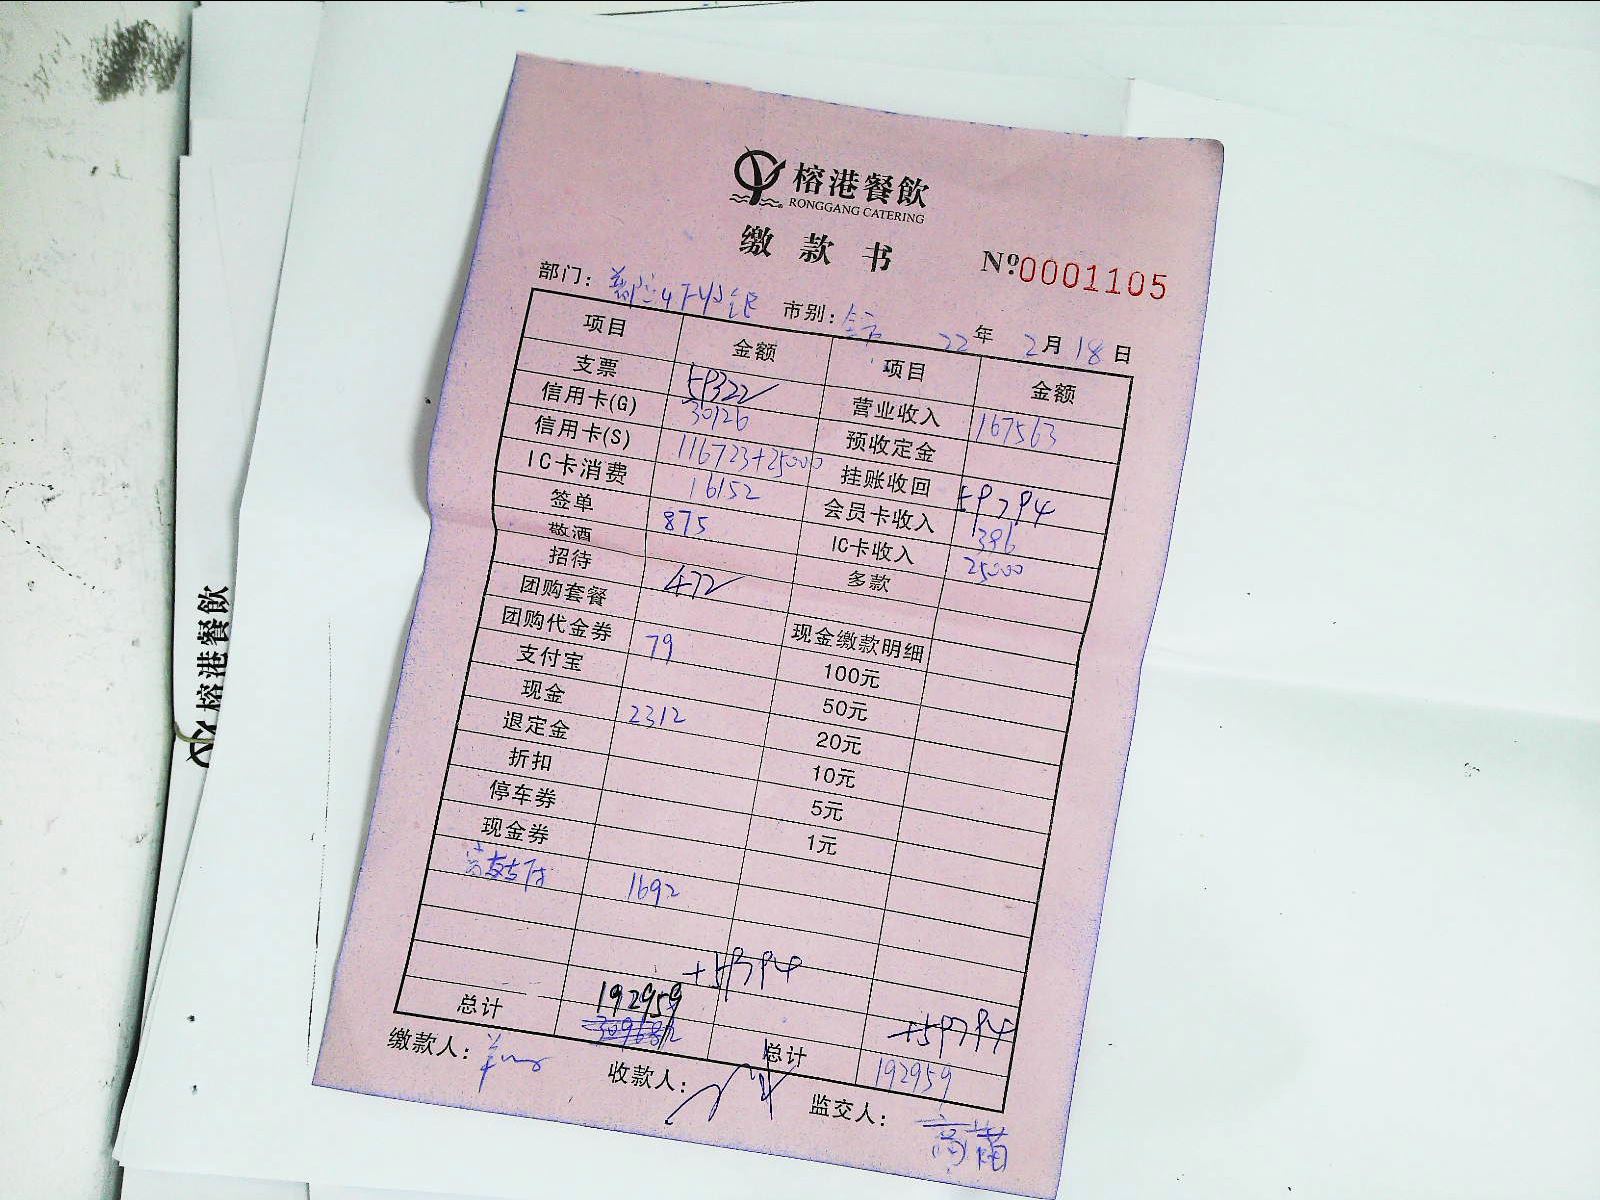 榕港餐飲
RONGGANG CATERING
缴款书 Nº.0001105
部门： 市别：全市 22年2月18日
项目 金额 项目 金额
支票 59322 营业收入 167563
信用卡(G) 30126 预收定金
信用卡(S) 116723+25000 挂账收回 59794
IC卡消费 16152 会员卡收入 396
签单 875 IC卡收入 25000
敬酒 多款
招待 472
团购套餐 现金缴款明细
团购代金券 79 100元
支付宝 50元
现金 2312 20元
退定金 10元
折扣 5元
停车券 1元
现金券
1692
+59794
192959 +59794
总计 总计 192959
缴款人： 收款人： 监交人：
榕港餐飲